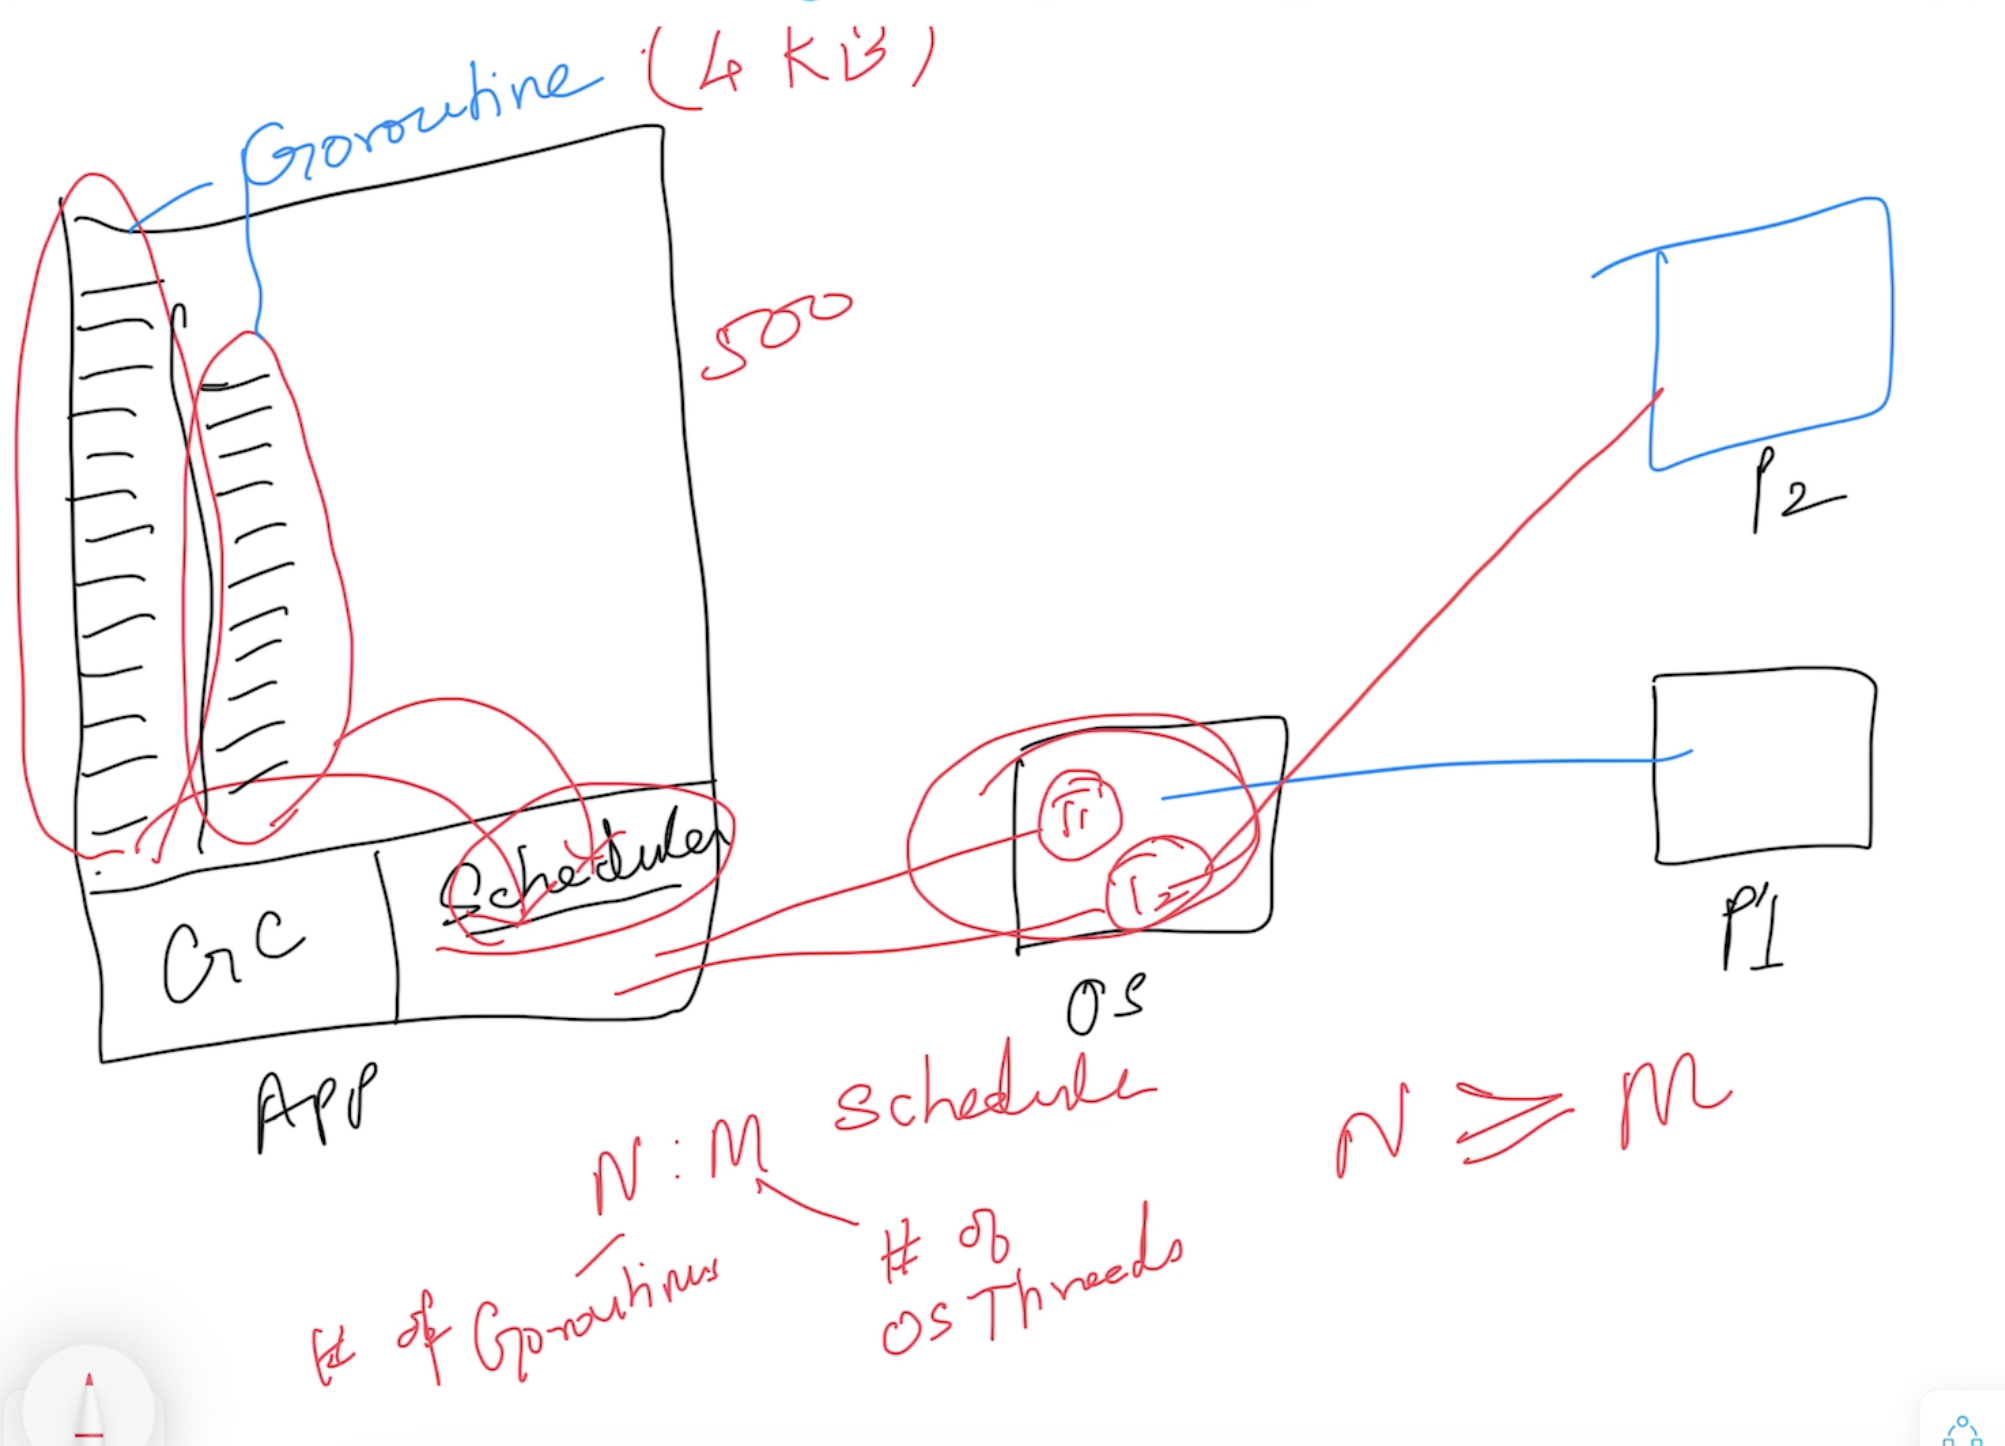 Goroutine (4 KB)
500
P2
T1
T2
Scheduler
GC
P1
OS
App
N : M Scheduler
N ≥ M
# of Goroutines
# of
OS Threads